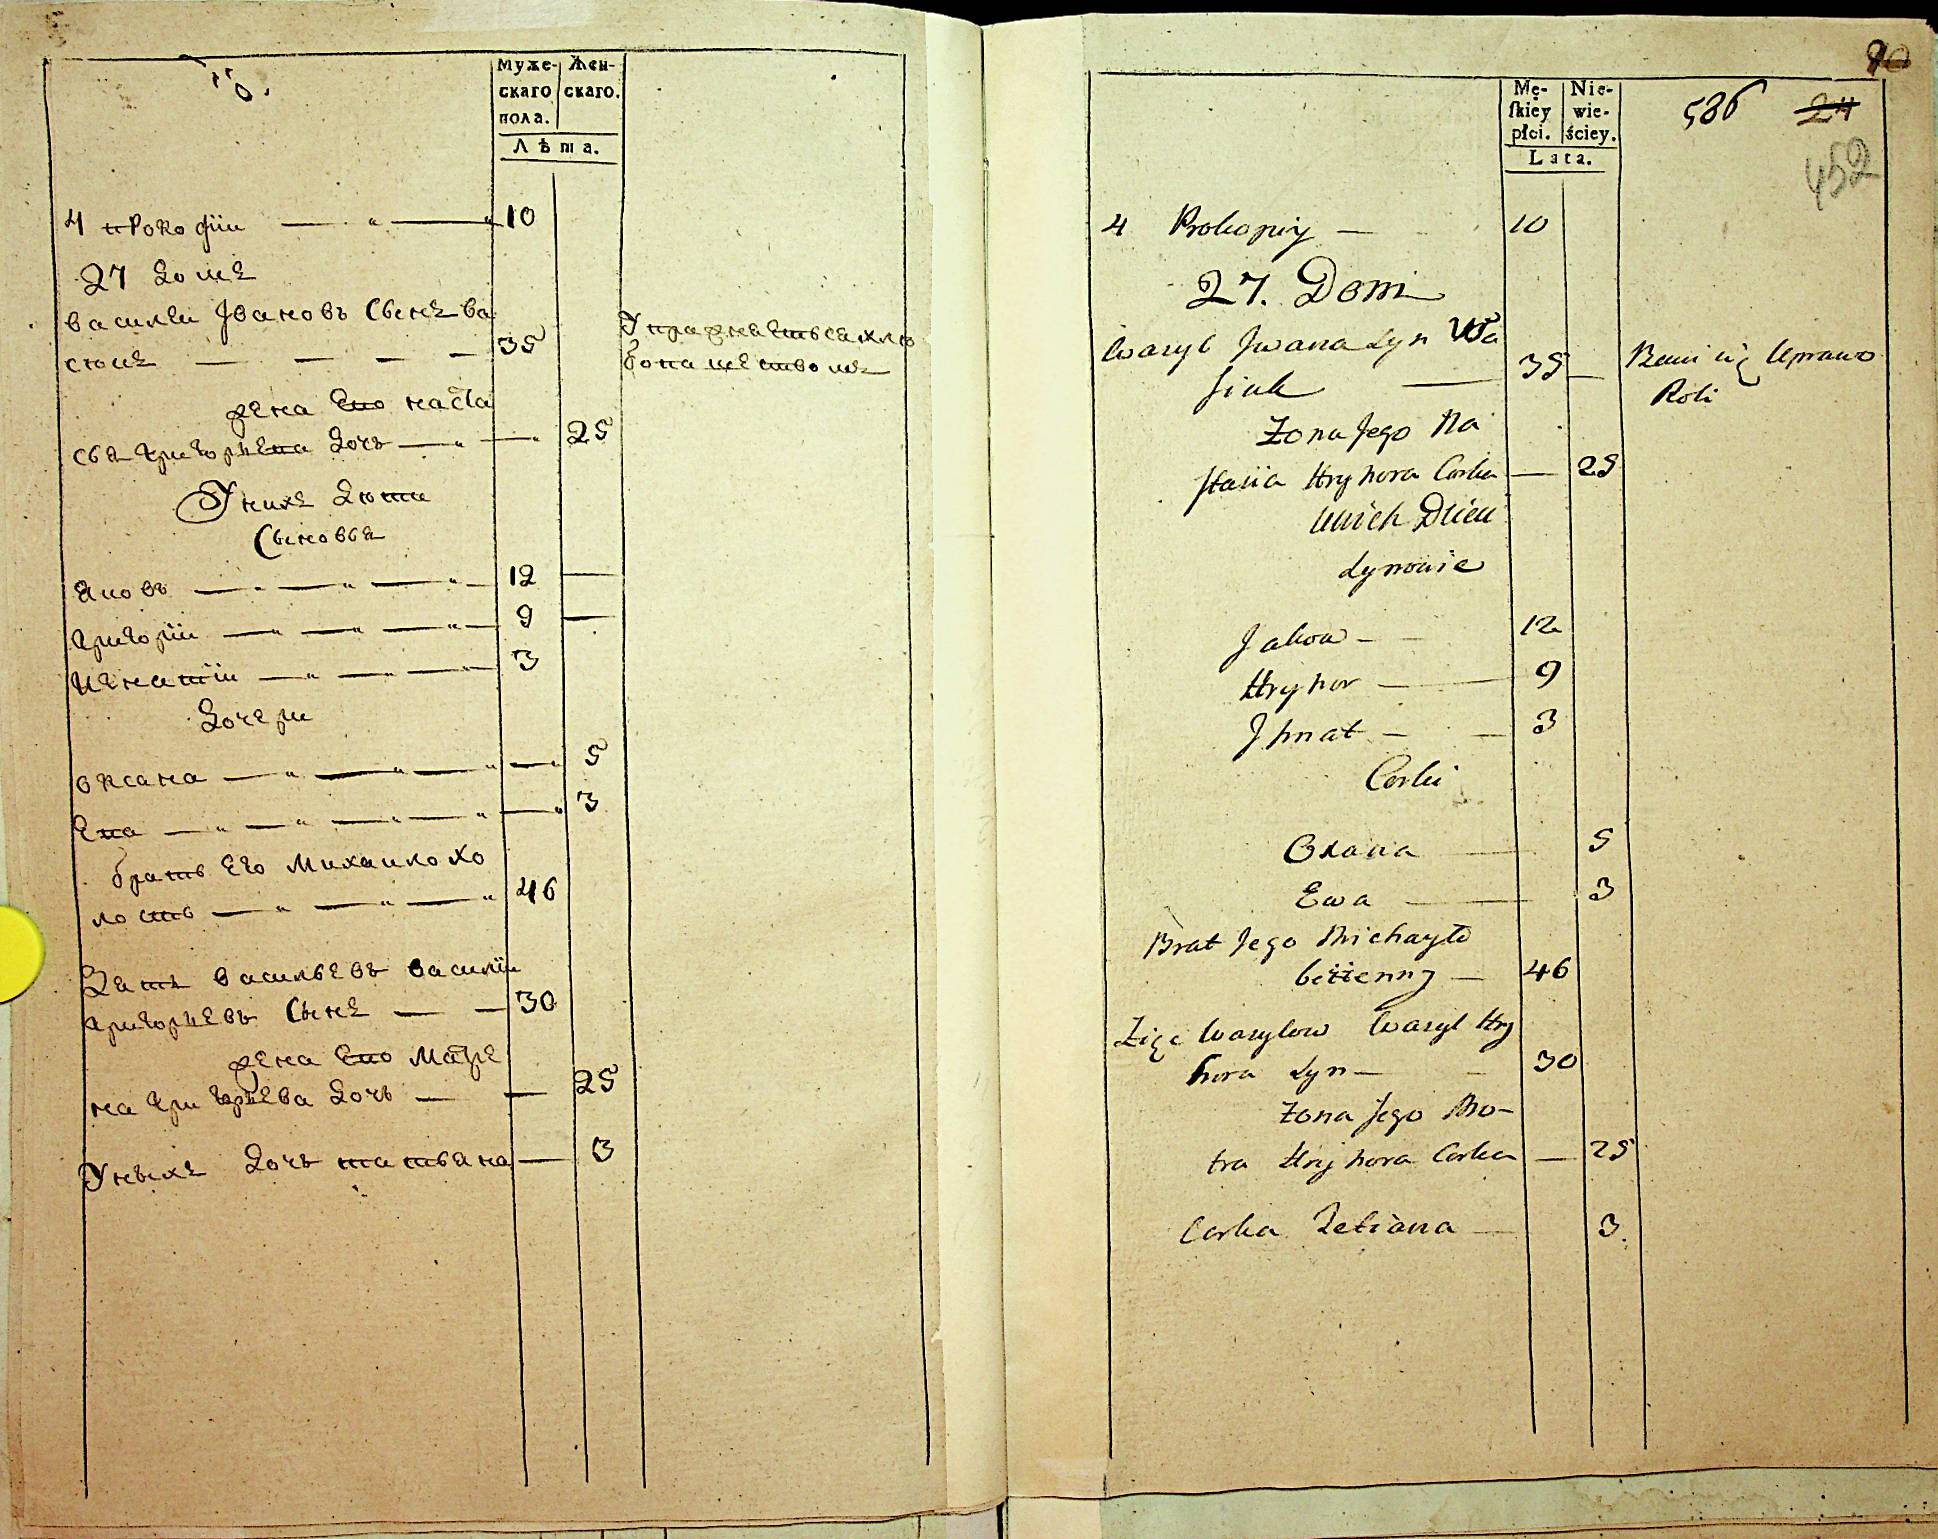 Муже-
скаго
пола.
Жен-
скаго.
Лѣта.
4 прокофiи 10
27 домъ
василеи Ивановъ Сынъ ва
сюкъ 35
Упражняеть ся хлѣ
бопашеством
жена Его наста
сея григорьева дочь 25
У нихъ дѣти
Сыновья
яковъ 12
григорiи 9
игнатiи 3
дочери
оксана 5
Ева 3
братъ Его Михаило хо
лостъ 46
Зять васильевъ василiи
григорьевъ Сынъ 30
жена Его Матре
на григорьева дочь 25
У ныхъ дочь татьяна 3
Mę-
ſkiey
płci.
Nie-
wie-
ściey.
Lata.
90
586 24
452
4 Prokopiy 10
27. Dom
Wasyl Jwana Syn Wa
siuk 35
Bawi się Uprawo
Roli
Zona Jego Na
stasia Hryhora Corka 25
Unich Dzieci
Synowie
Jakow 12
Hryhor 9
Jhnat 3
Corki
Oxana 5
Ewa 3
Brat Jego Michayło
bezzenny 46
Zięc Wasylow Wasyl Hry
hora Syn 30
Zona Jego Mo-
tra Hryhora Corka 25
Corka Tetiana 3.